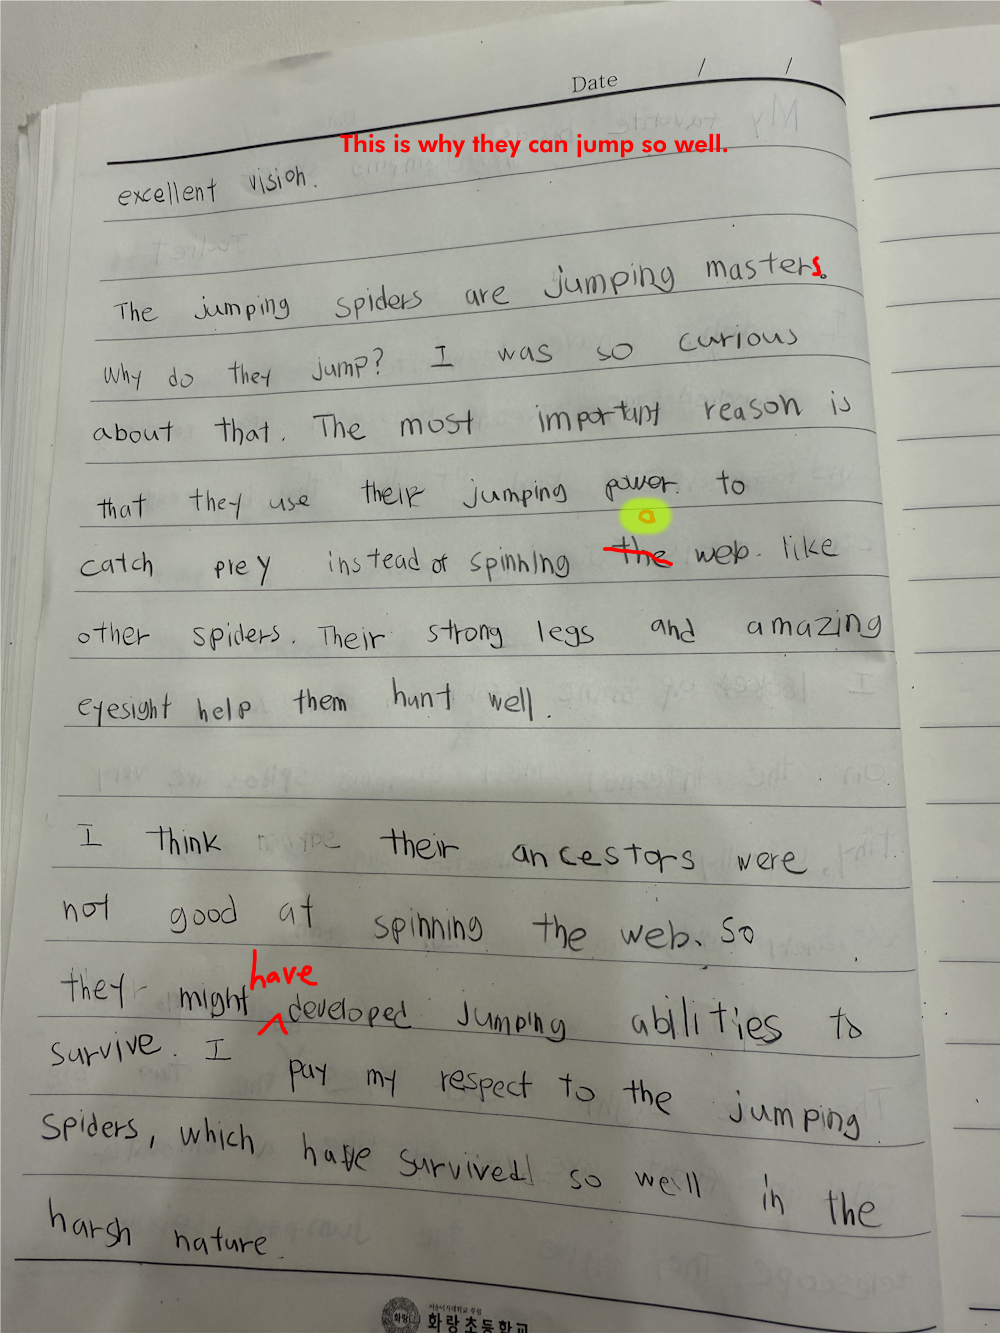 Date / /
This is why they can jump so well.
excellent vision.
The jumping spiders are jumping masters.
Why do they jump? I was so curious
about that. The most important reason is
that they use their jumping power to
a
catch prey instead of spinning the web like
other spiders. Their strong legs and amazing
eyesight help them hunt well.
I think their ancestors were
not good at spinning the web. So
have
they might developed jumping abilities to
survive. I pay my respect to the jumping
spiders, which have survived so well in the
harsh nature.
화랑초등학교